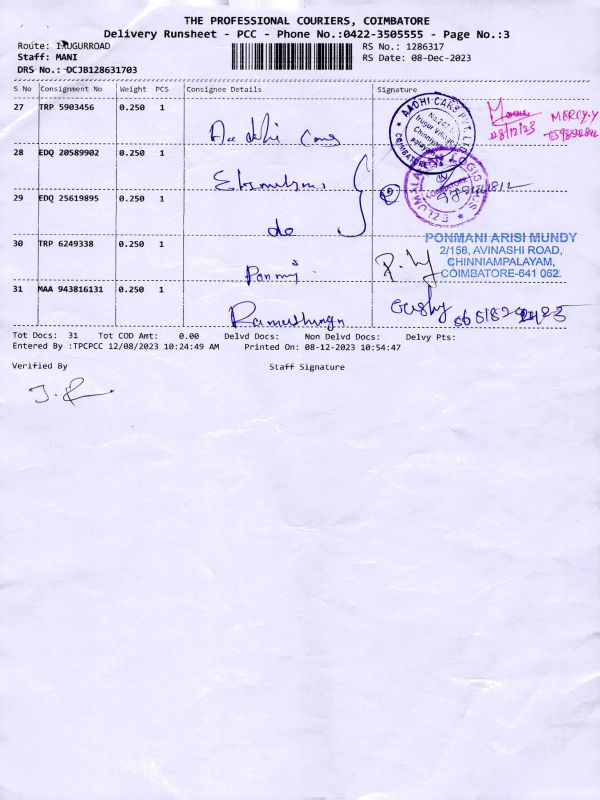 THE PROFESSIONAL COURIERS, COIMBATORE
Delivery Runsheet - PCC - Phone No.:0422-3505555 - Page No.:3
Route: IRUGURROAD
RS No.: 1286317
Staff: MANI
RS Date: 08-Dec-2023
DRS No.: DCJB128631703
S No Consignment No Weight PCS Consignee Details Signature
27 TRP 5903456 0.250 1
AADHI CARE PVT. LTD
COIMBATORE
MERCY-Y
08/12/23
28 EDQ 20589902 0.250 1
29 EDQ 25619895 0.250 1
do
30 TRP 6249338 0.250 1
PONMANI ARISI MUNDY
2/158, AVINASHI ROAD,
CHINNIAMPALAYAM,
COIMBATORE-641 062.
31 MAA 943816131 0.250 1
Tot Docs: 31 Tot COD Amt: 0.00 Delvd Docs: Non Delvd Docs: Delvy Pts:
Entered By :TPCPCC 12/08/2023 10:24:49 AM Printed On: 08-12-2023 10:54:47
Verified By Staff Signature